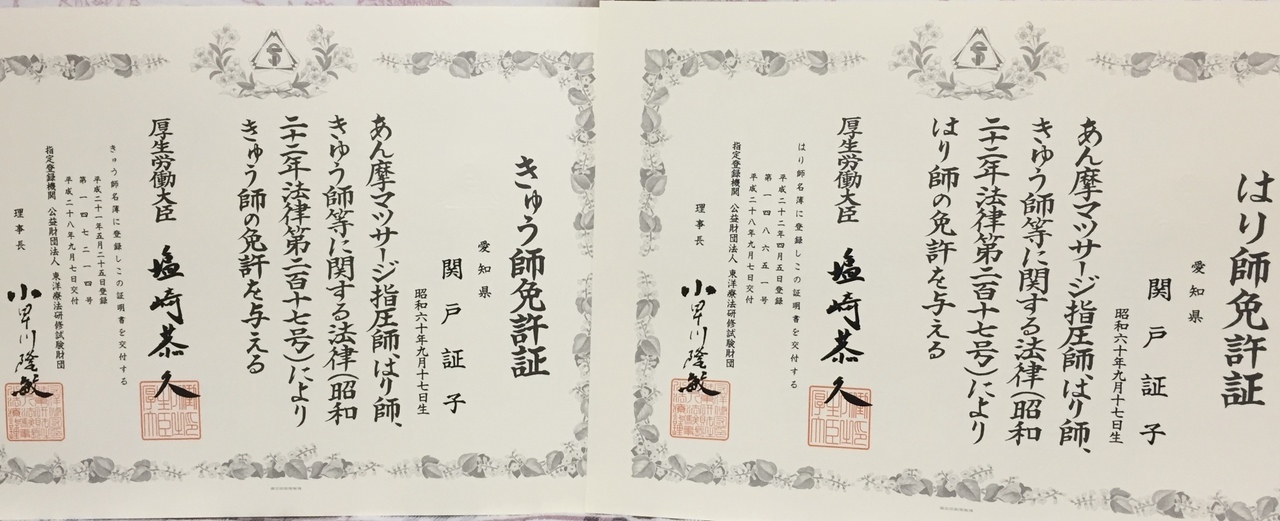 はり師免許証
愛知県
関戸証子
昭和六十年九月十七日生
あん摩マツサージ指圧師、はり師、
きゆう師等に関する法律（昭和
二十二年法律第二百十七号）により
はり師の免許を与える
厚生労働大臣 塩崎恭久
はり師名簿に登録しこの証明書を交付する
平成二十二年四月五日登録
第一四八六五一号
平成二十八年九月七日交付
指定登録機関 公益財団法人 東洋療法研修試験財団
理事長 小早川隆敏
きゅう師免許証
愛知県
関戸証子
昭和六十年九月十七日生
あん摩マツサージ指圧師、はり師、
きゆう師等に関する法律（昭和
二十二年法律第二百十七号）により
きゅう師の免許を与える
厚生労働大臣 塩崎恭久
きゅう師名簿に登録しこの証明書を交付する
平成二十一年五月二十五日登録
第一四七二一四号
平成二十八年九月七日交付
指定登録機関 公益財団法人 東洋療法研修試験財団
理事長 小早川隆敏